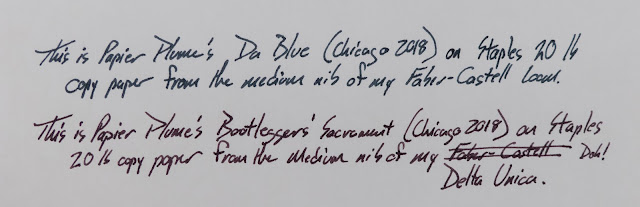 This is Papier Plume's Da Blue (Chicago 2018) on Staples 20 lb
copy paper from the medium nib of my Faber-Castell Loom.
This is Papier Plume's Bootleggers' Sacrament (Chicago 2018) on Staples
20 lb copy paper from the medium nib of my Faber-Castell Doh!
Delta Unica.